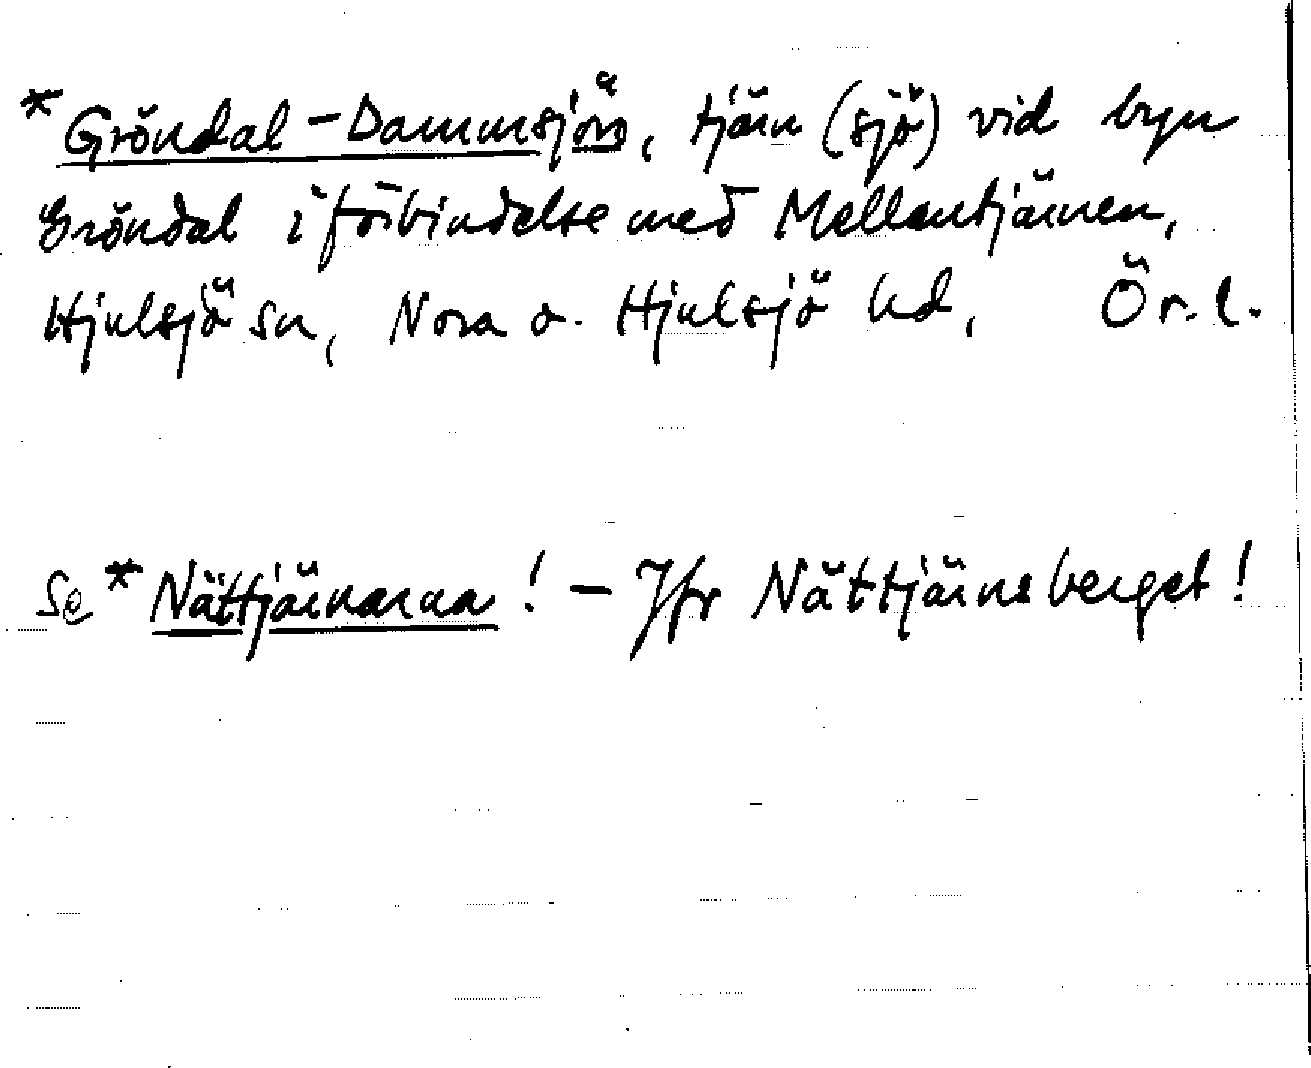 *Gröndal-Dammsjön, tjärn (sjö) vid byn
Gröndal i förbindelse med Mellantjärnen,
Hjulsjö sn, Nora o. Hjulsjö hd, Ör. l.
se *Nättjärnarna! – Jfr Nättjärnsberget!